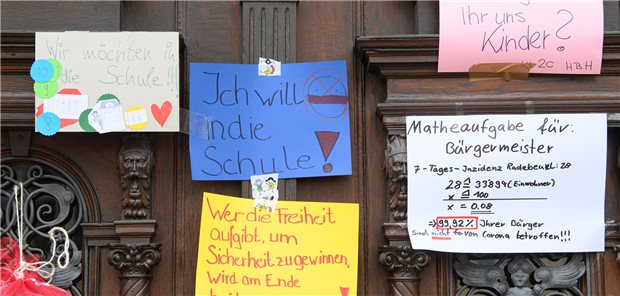 Wir möchten in
die Schule!!!
Ich will
in die
Schule!
Wer die Freiheit
aufgibt, um
Sicherheit zu gewinnen,
wird am Ende
Ihr uns
Kinder?
Kl 2C H.B.H
Matheaufgabe für:
Bürgermeister
7-Tages-Inzidenz Radebeul: 28
28 ≙ 33894 (Einwohner)
x ≙ 100
x = 0,08
⇒ 99,92% Ihrer Bürger
sind nicht von Corona betroffen!!!